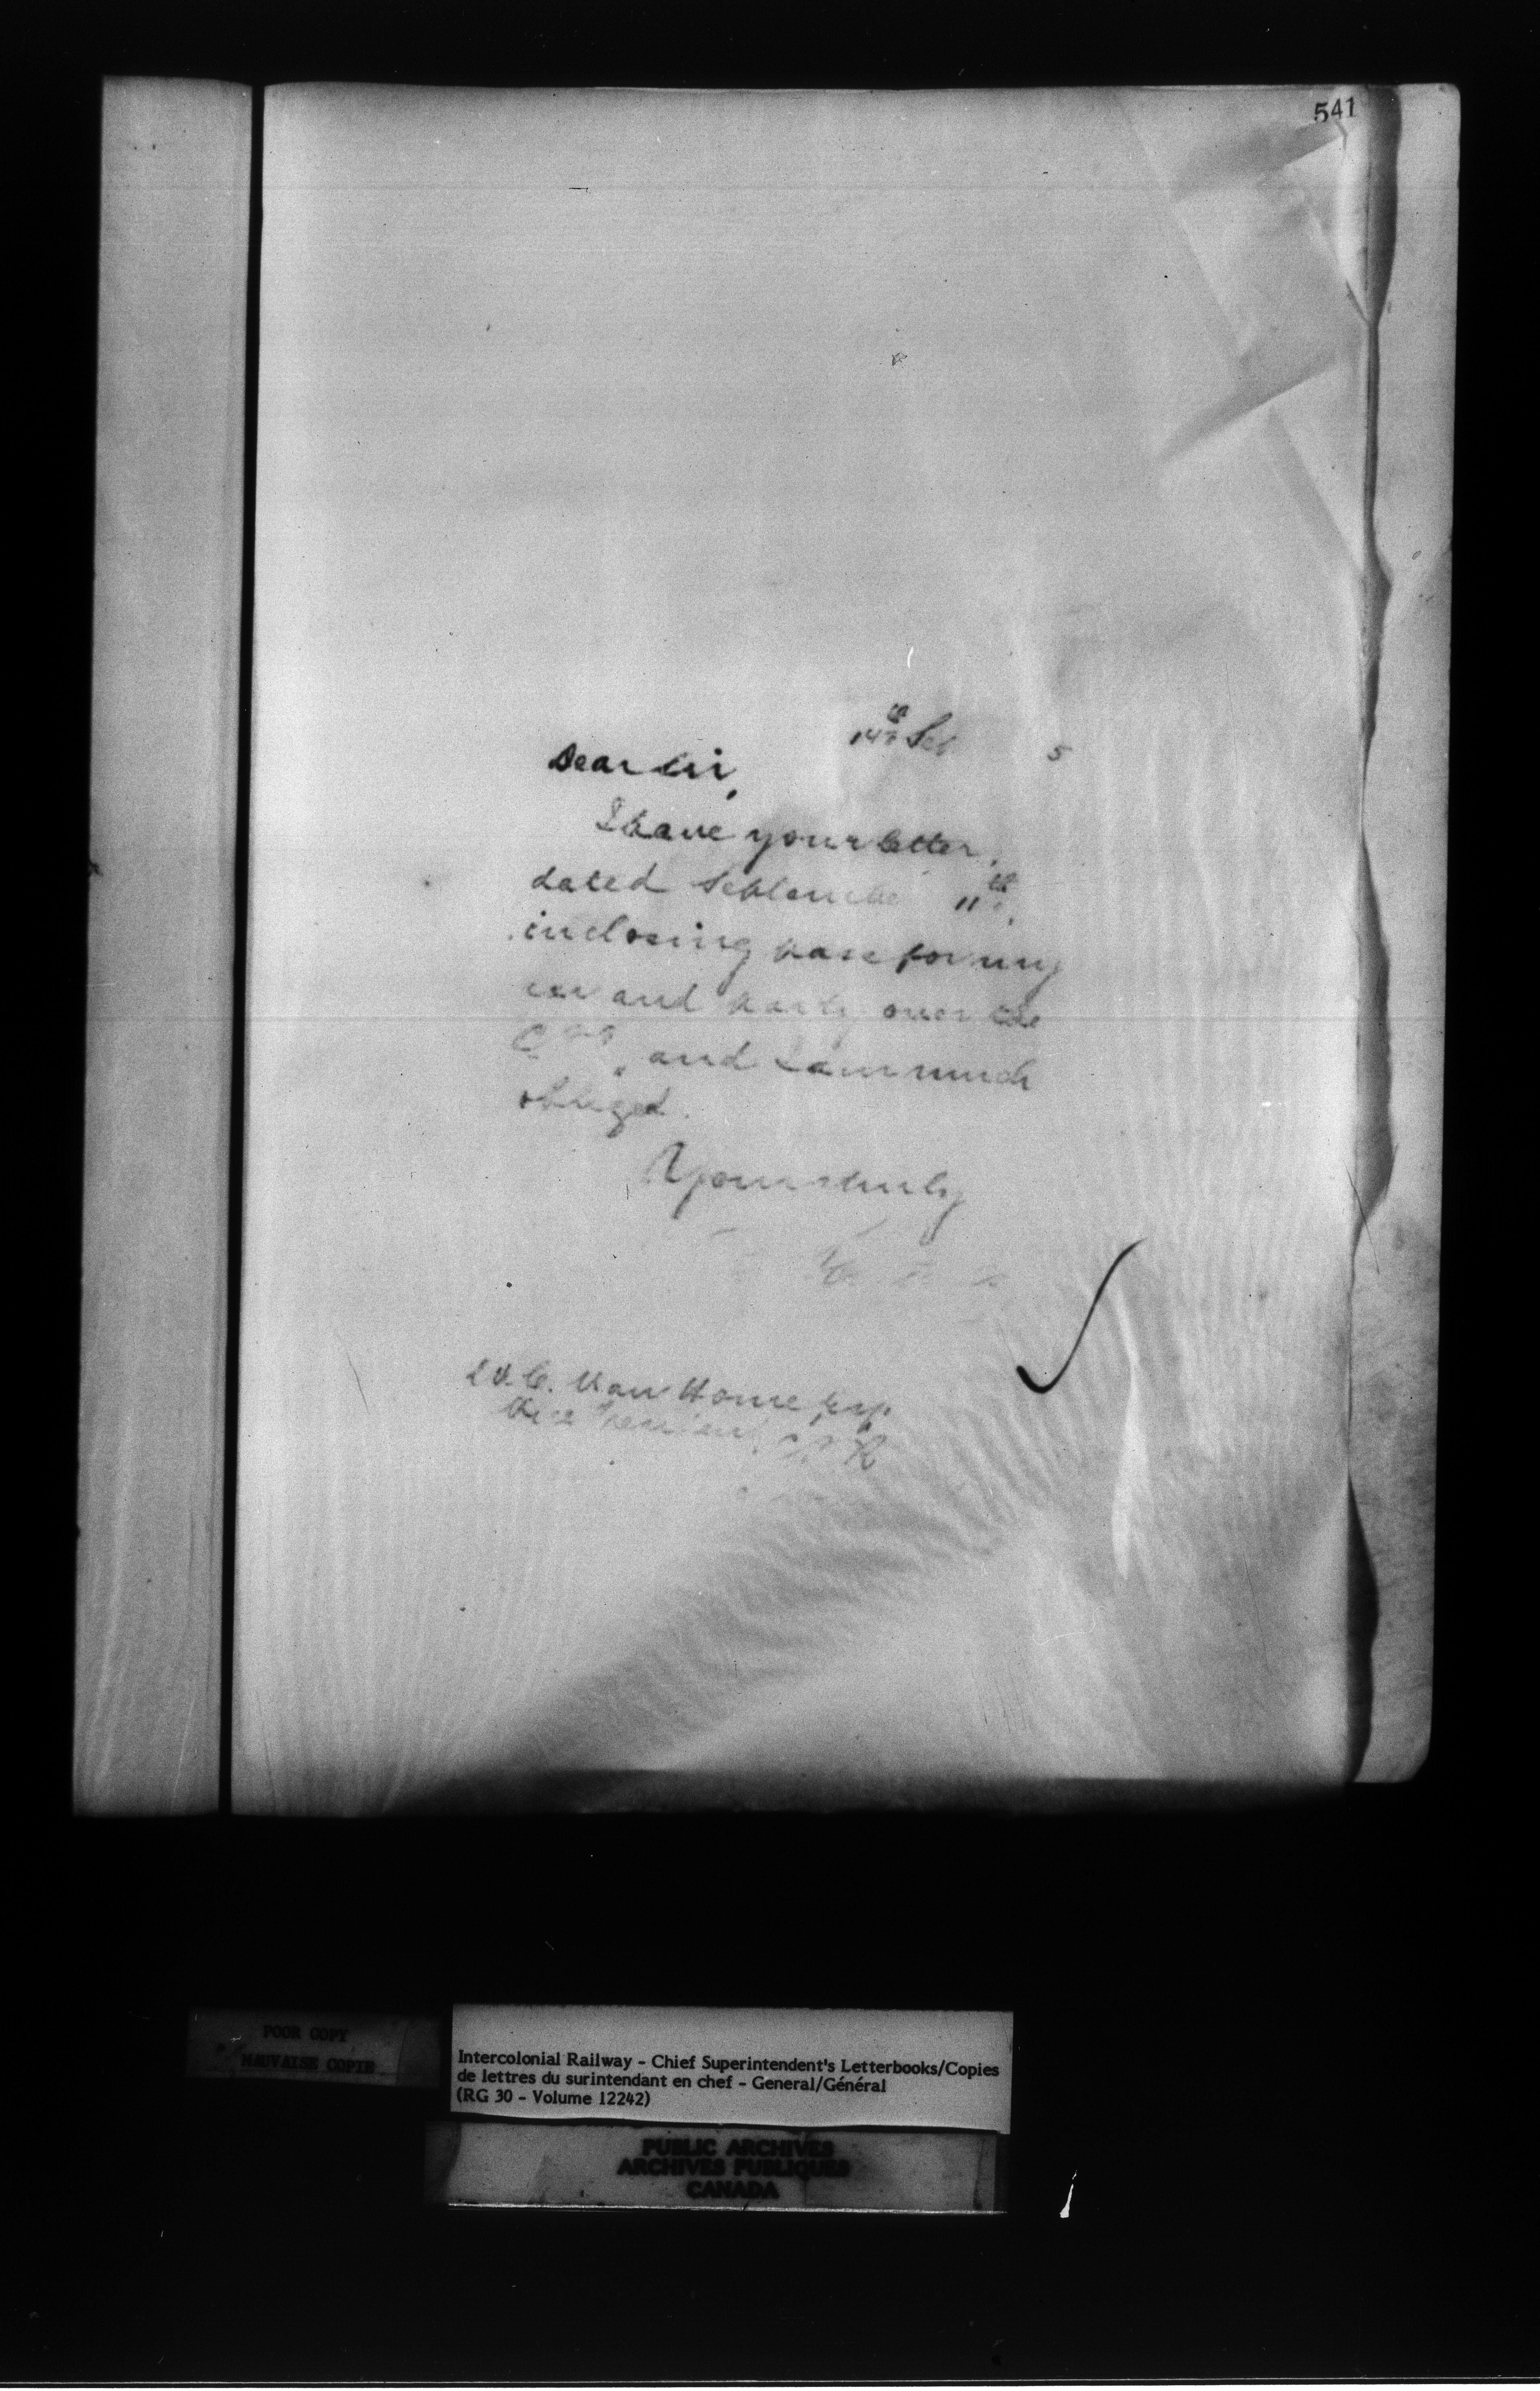 541
14th Sep 5
Dear Sir,
I have your letter,
dated September 11th,
inclosing pass for my
car and party over the
C , and I am much
obliged.
Yours truly
W.C. Van Horne, Esq.
Vice President, C.P.R
POOR COPY
MAUVAISE COPIE
Intercolonial Railway - Chief Superintendent's Letterbooks/Copies
de lettres du surintendant en chef - General/Général
(RG 30 - Volume 12242)
PUBLIC ARCHIVES
ARCHIVES PUBLIQUES
CANADA